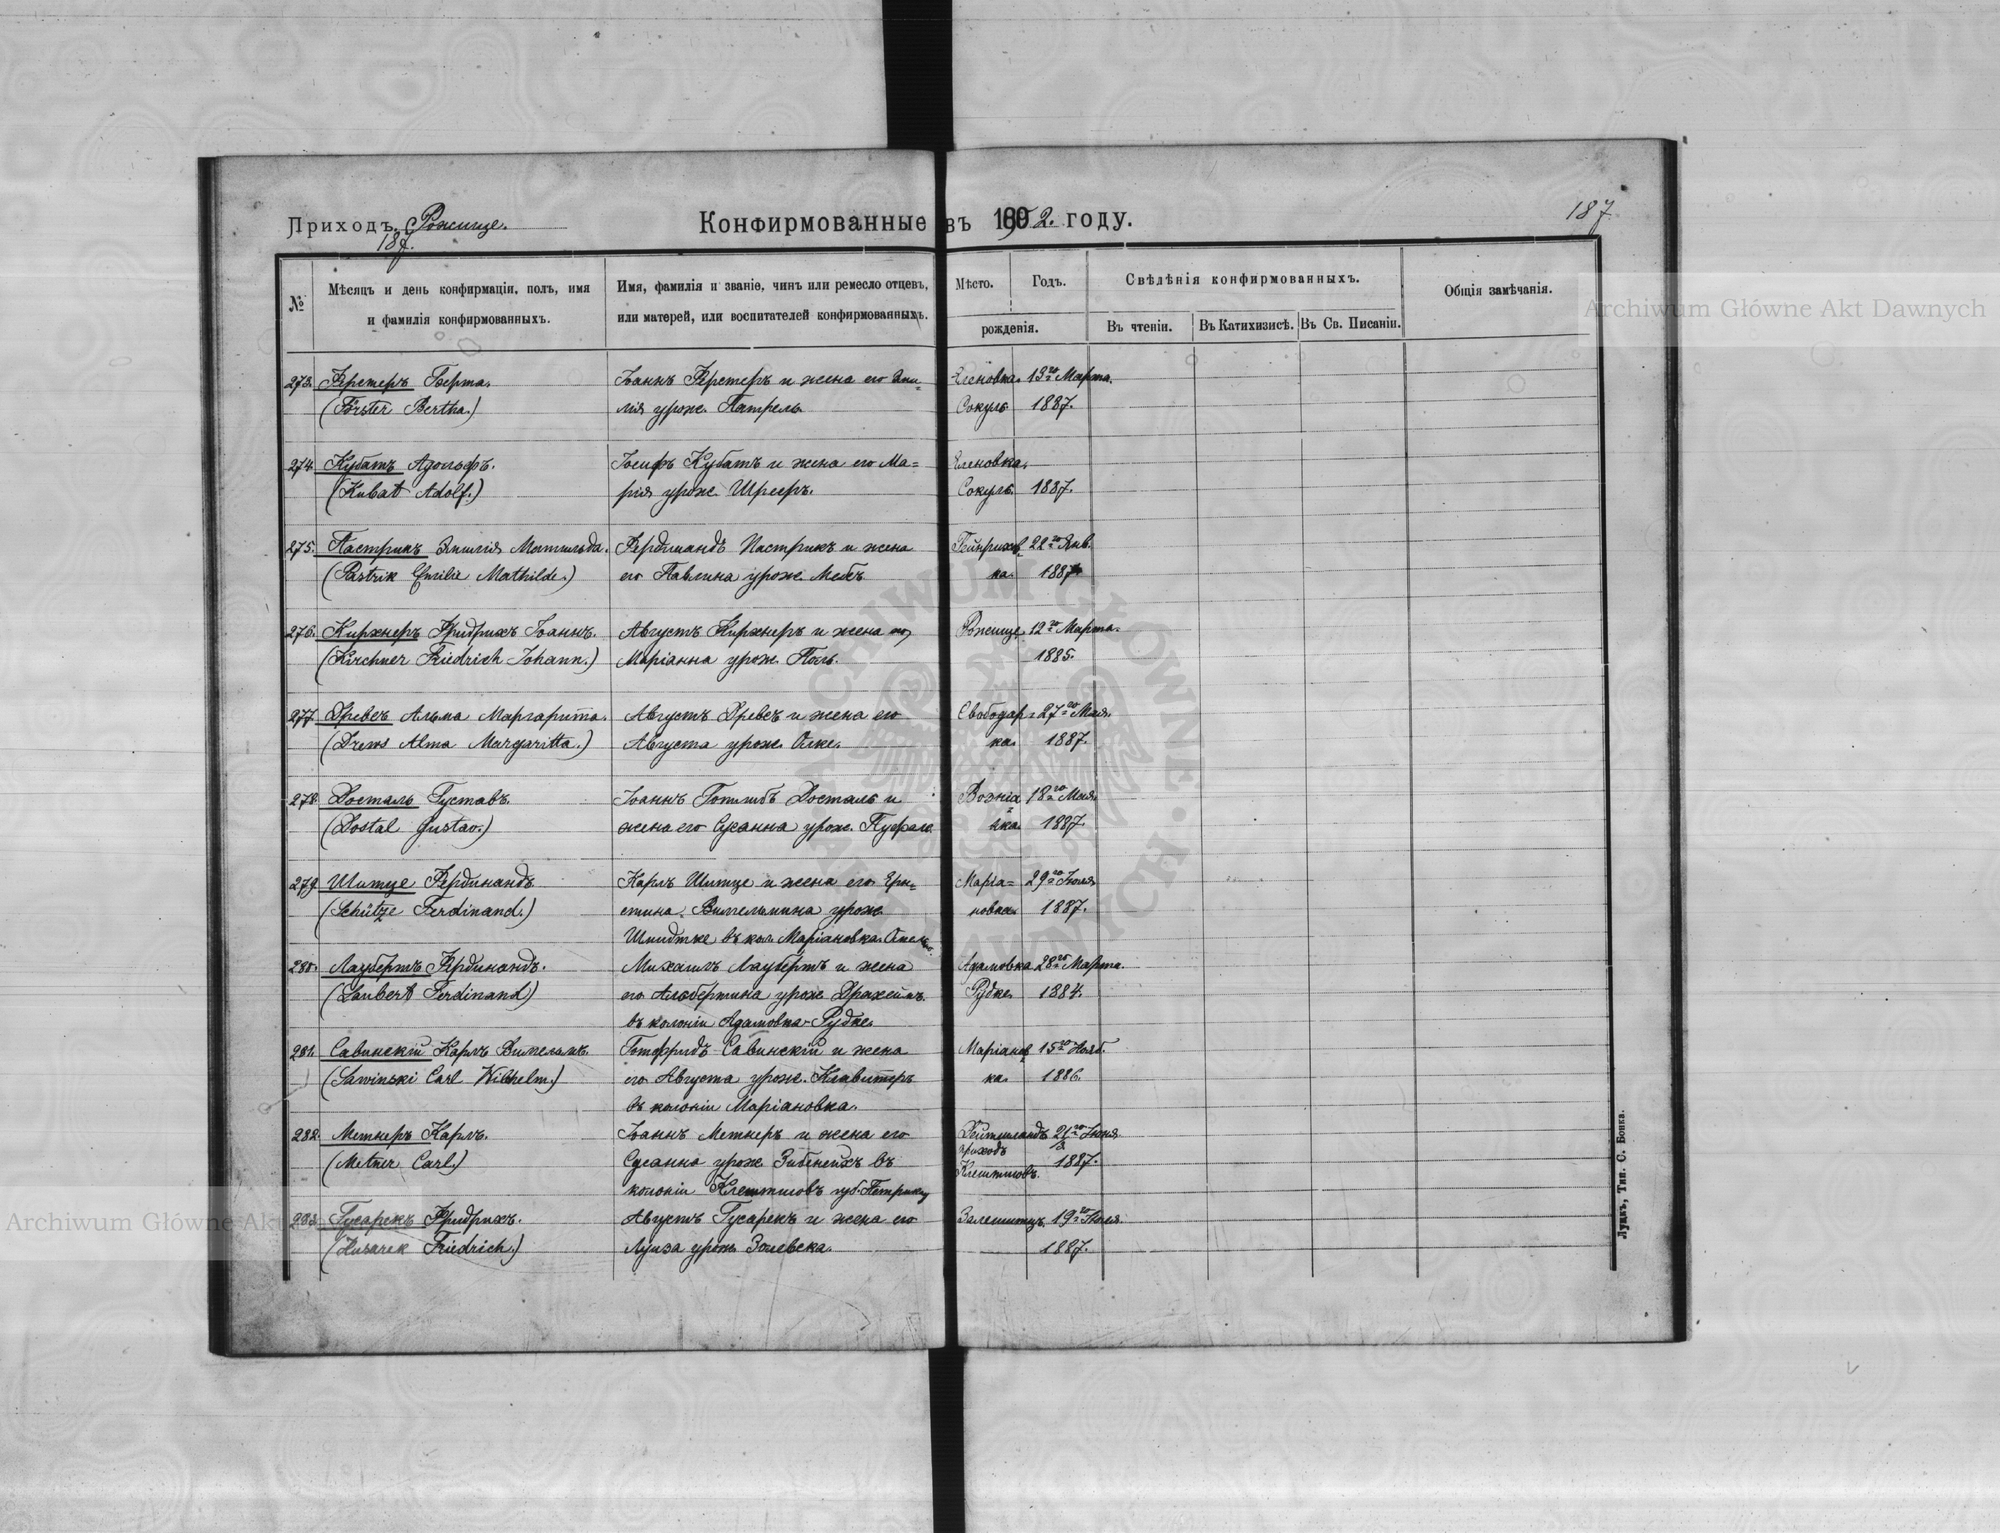 Приходъ Рожище.
187.
Конфирмованные въ 1902. году.
187
№
Мѣсяцъ и день конфирмаціи, полъ, имя
и фамилія конфирмованныхъ.
Имя, фамилія и званіе, чинъ или ремесло отцевъ,
или матерей, или воспитателей конфирмованныхъ.
Мѣсто. Годъ.
рожденія.
Свѣдѣнія конфирмованныхъ.
Въ чтеніи. Въ Катихизисѣ. Въ Св. Писаніи.
Общія замѣчанія.
273. Ферстеръ Берта. Іоаннъ Ферстеръ и жена его Эми- Еленовка 13го Марта.
(Förster Bertha.) лія урож. Патрель. Сокулъ 1887.
274. Кубатъ Адольфъ. Іосифъ Кубатъ и жена его Ма= Еленовка.
(Kubat Adolf.) рія урож. Шрееръ. Сокулъ. 1887.
275. Пастрикъ Эмилія Матильда. Фердинандъ Пастрикъ и жена Гейнрихов 22го Янв.
(Pastrik Emilie Mathilde.) его Павлина урож. Мебсъ ка. 1887
276. Кирхнеръ Фридрихъ Іоаннъ. Августъ Кирхнеръ и жена его Рожище 12го Марта.
(Kirchner Friedrich Johann.) Маріанна урож. Поль. 1885.
277. Древсъ Альма Маргаритта. Августъ Древсъ и жена его Свободар= 27го Мая.
(Drews Alma Margaritta.) Августа урож. Ольке. ка. 1887.
278. Досталь Густавъ. Іоаннъ Готлибъ Досталь и 18го Мая.
(Dostal Gustav.) жена его Сусанна урож. 1887.
279. Шитце Фердинандъ Карлъ Шитце и жена его Ерн= Маріа= 29го Іюля
(Schütze Ferdinand.) стина Вильгельмина урож. новка. 1887.
Шмидтке въ кол. Маріановка
280. Лаубертъ Фердинандъ. Михаилъ Лаубертъ и жена Адамовка 28го Марта.
(Laubert Ferdinand) его Альбертина урож. Драхеймъ Рудке. 1884.
въ колоніи Адамовка-Рудке.
281. Савинскій Карлъ Вильгельмъ. Готфридъ Савинскій и жена Маріанов 15го Нояб.
(Sawinski Carl Wilhelm.) его Августа урож. Клавитеръ ка. 1886.
въ колоніи Маріановка.
282. Метнеръ Карлъ. Іоаннъ Метнеръ и жена его 21го Іюня
приходъ
(Metner Carl.) Сусанна урож. въ 1887.
колоніи
283. Гусарекъ Фридрихъ. Августъ Гусарекъ и жена его Залешитцъ 19го Іюля
(Husarek Friedrich.) Луиза урож. Золевска. 1887.
Луцкъ, Тип. С. Бонка.
Archiwum Główne Akt Dawnych
Archiwum Główne Akt Dawnych
ARCHIWUM GŁÓWNE AKT DAWNYCH